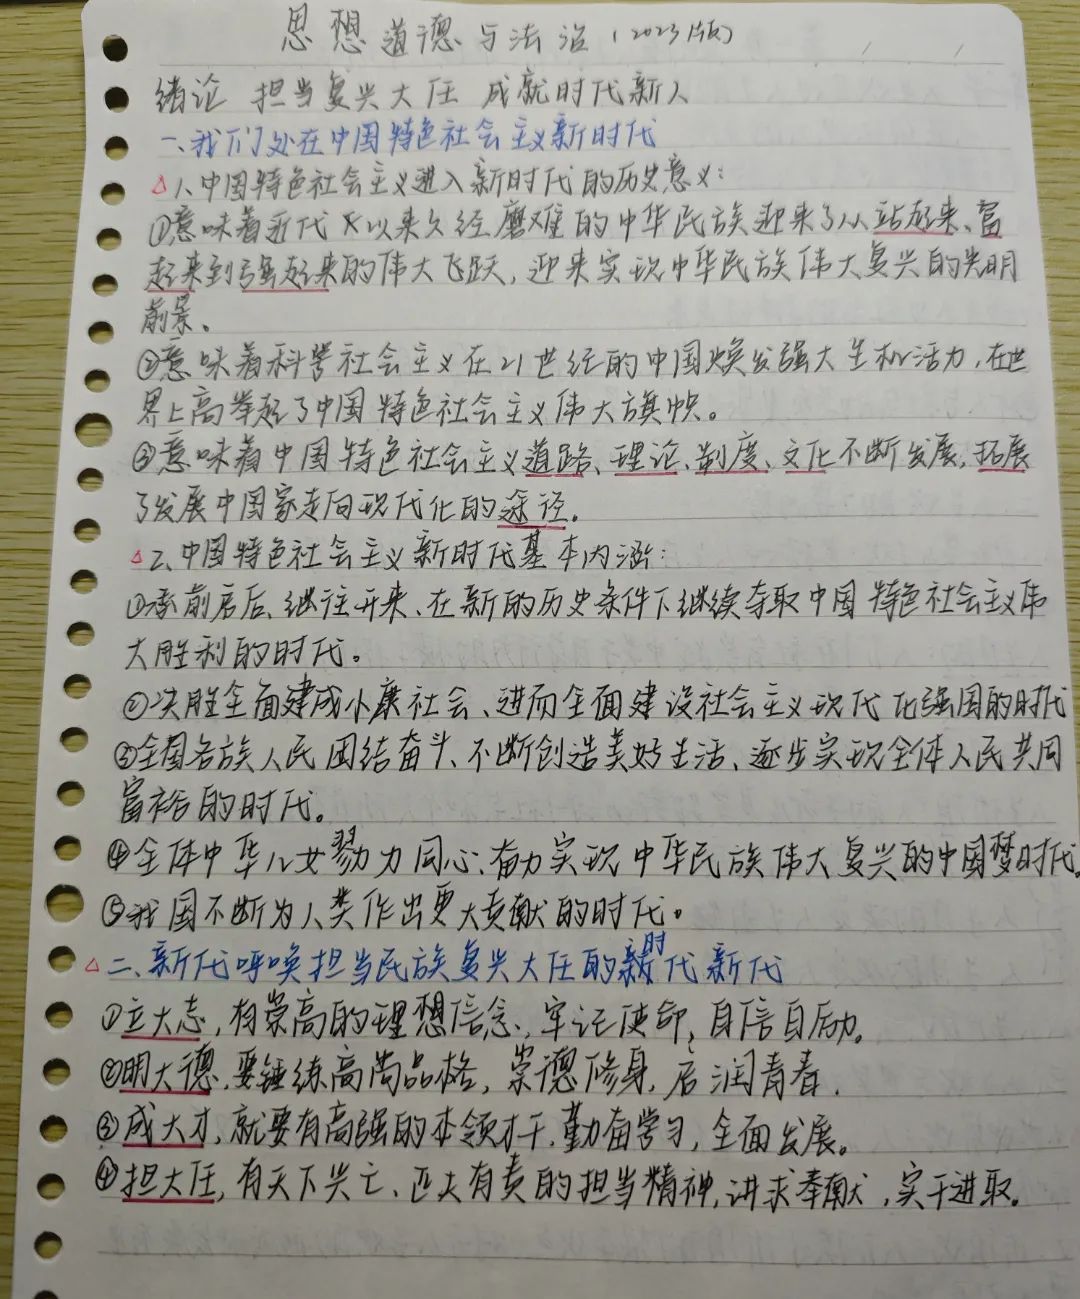 思想道德与法治(2023版)
绪论 担当复兴大任 成就时代新人
一、我们处在中国特色社会主义新时代
△1、中国特色社会主义进入新时代的历史意义:
①意味着近代以来久经磨难的中华民族迎来了从站起来、富
起来到强起来的伟大飞跃,迎来实现中华民族伟大复兴的光明
前景。
②意味着科学社会主义在21世纪的中国焕发强大生机活力,在世
界上高举起了中国特色社会主义伟大旗帜。
③意味着中国特色社会主义道路、理论、制度、文化不断发展,拓展
了发展中国家走向现代化的途径。
△2、中国特色社会主义新时代基本内涵:
①承前启后、继往开来、在新的历史条件下继续夺取中国特色社会主义伟
大胜利的时代。
②决胜全面建成小康社会、进而全面建设社会主义现代化强国的时代
③全国各族人民团结奋斗、不断创造美好生活、逐步实现全体人民共同
富裕的时代。
④全体中华儿女勠力同心、奋力实现中华民族伟大复兴的中国梦时代。
⑤我国不断为人类作出更大贡献的时代。
△二、新代呼唤担当民族复兴大任的新时代新代
①立大志,有崇高的理想信念、牢记使命,自信自励。
②明大德,要锤练高尚品格,崇德修身,启润青春.
③成大才,就要有高强的本领才干,勤奋学习,全面发展。
④担大任,有天下兴亡、匹夫有责的担当精神,讲求奉献,实干进取。